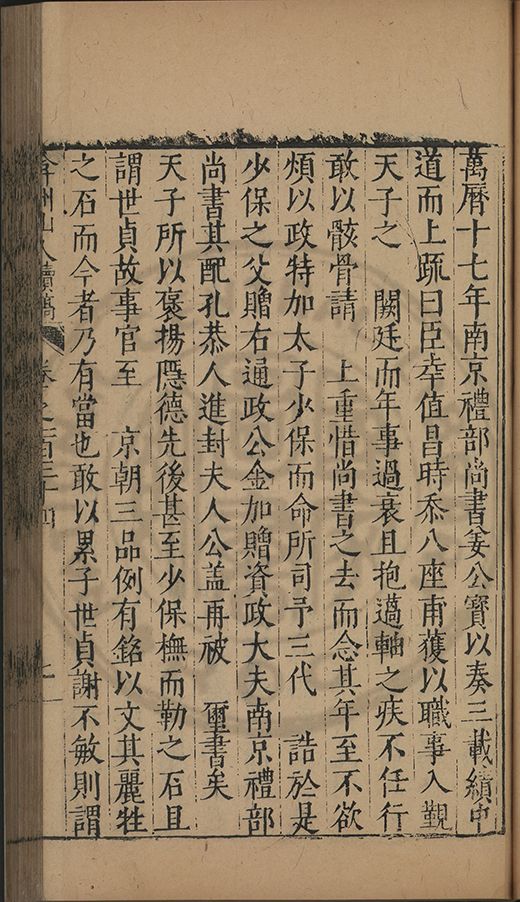 萬曆十七年南京禮部尚書姜公寶以奏三載績中
道而上䟽曰臣幸值昌時忝八座甫獲以職事入覲
天子之　闕廷而年事過衰且抱薖軸之疾不任行
敢以骸骨請　上重惜尚書之去而念其年至不欲
煩以政特加太子少保而命所司予三代　誥於是
少保之父贈右通政公金加贈資政大夫南京禮部
尚書其配孔恭人進封夫人公蓋再被　璽書矣
天子所以褒揚隱德先後甚至少保撫而勒之石且
謂世貞故事官至　京朝三品例有銘以文其麗牲
之石而今者乃有當也敢以累子世貞謝不敏則謂
弇州山人續稿　卷之一百三十四　七